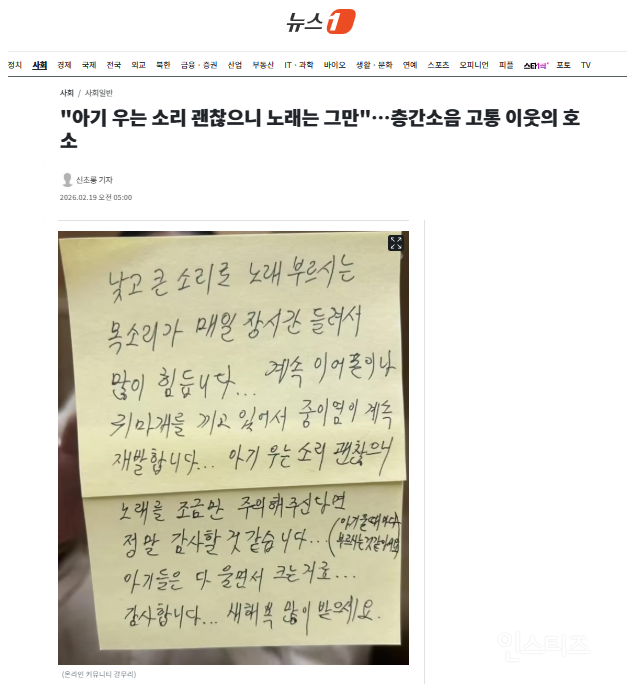 뉴스1
정치 사회 경제 국제 전국 외교 북한 금융·증권 산업 부동산 IT·과학 바이오 생활·문화 연예 스포츠 오피니언 피플 스타1픽 포토 TV
사회 / 사회일반
"아기 우는 소리 괜찮으니 노래는 그만"…층간소음 고통 이웃의 호
소
신초롱 기자
2026.02.19 오전 05:00
낮고 큰 소리로 노래 부르시는
목소리가 매일 장시간 들려서
많이 힘듭니다... 계속 이어폰이나
귀마개를 끼고 있어서 중이염이 계속
재발합니다... 아기 우는 소리 괜찮으니
노래를 조금만 주의해주신다면
정말 감사할 것 같습니다...(아기 울때마다
부르시는것같아서요)
아기들은 다 울면서 크는거죠...
감사합니다... 새해복 많이 받으세요.
(온라인 커뮤니티 갈무리)
인스티즈